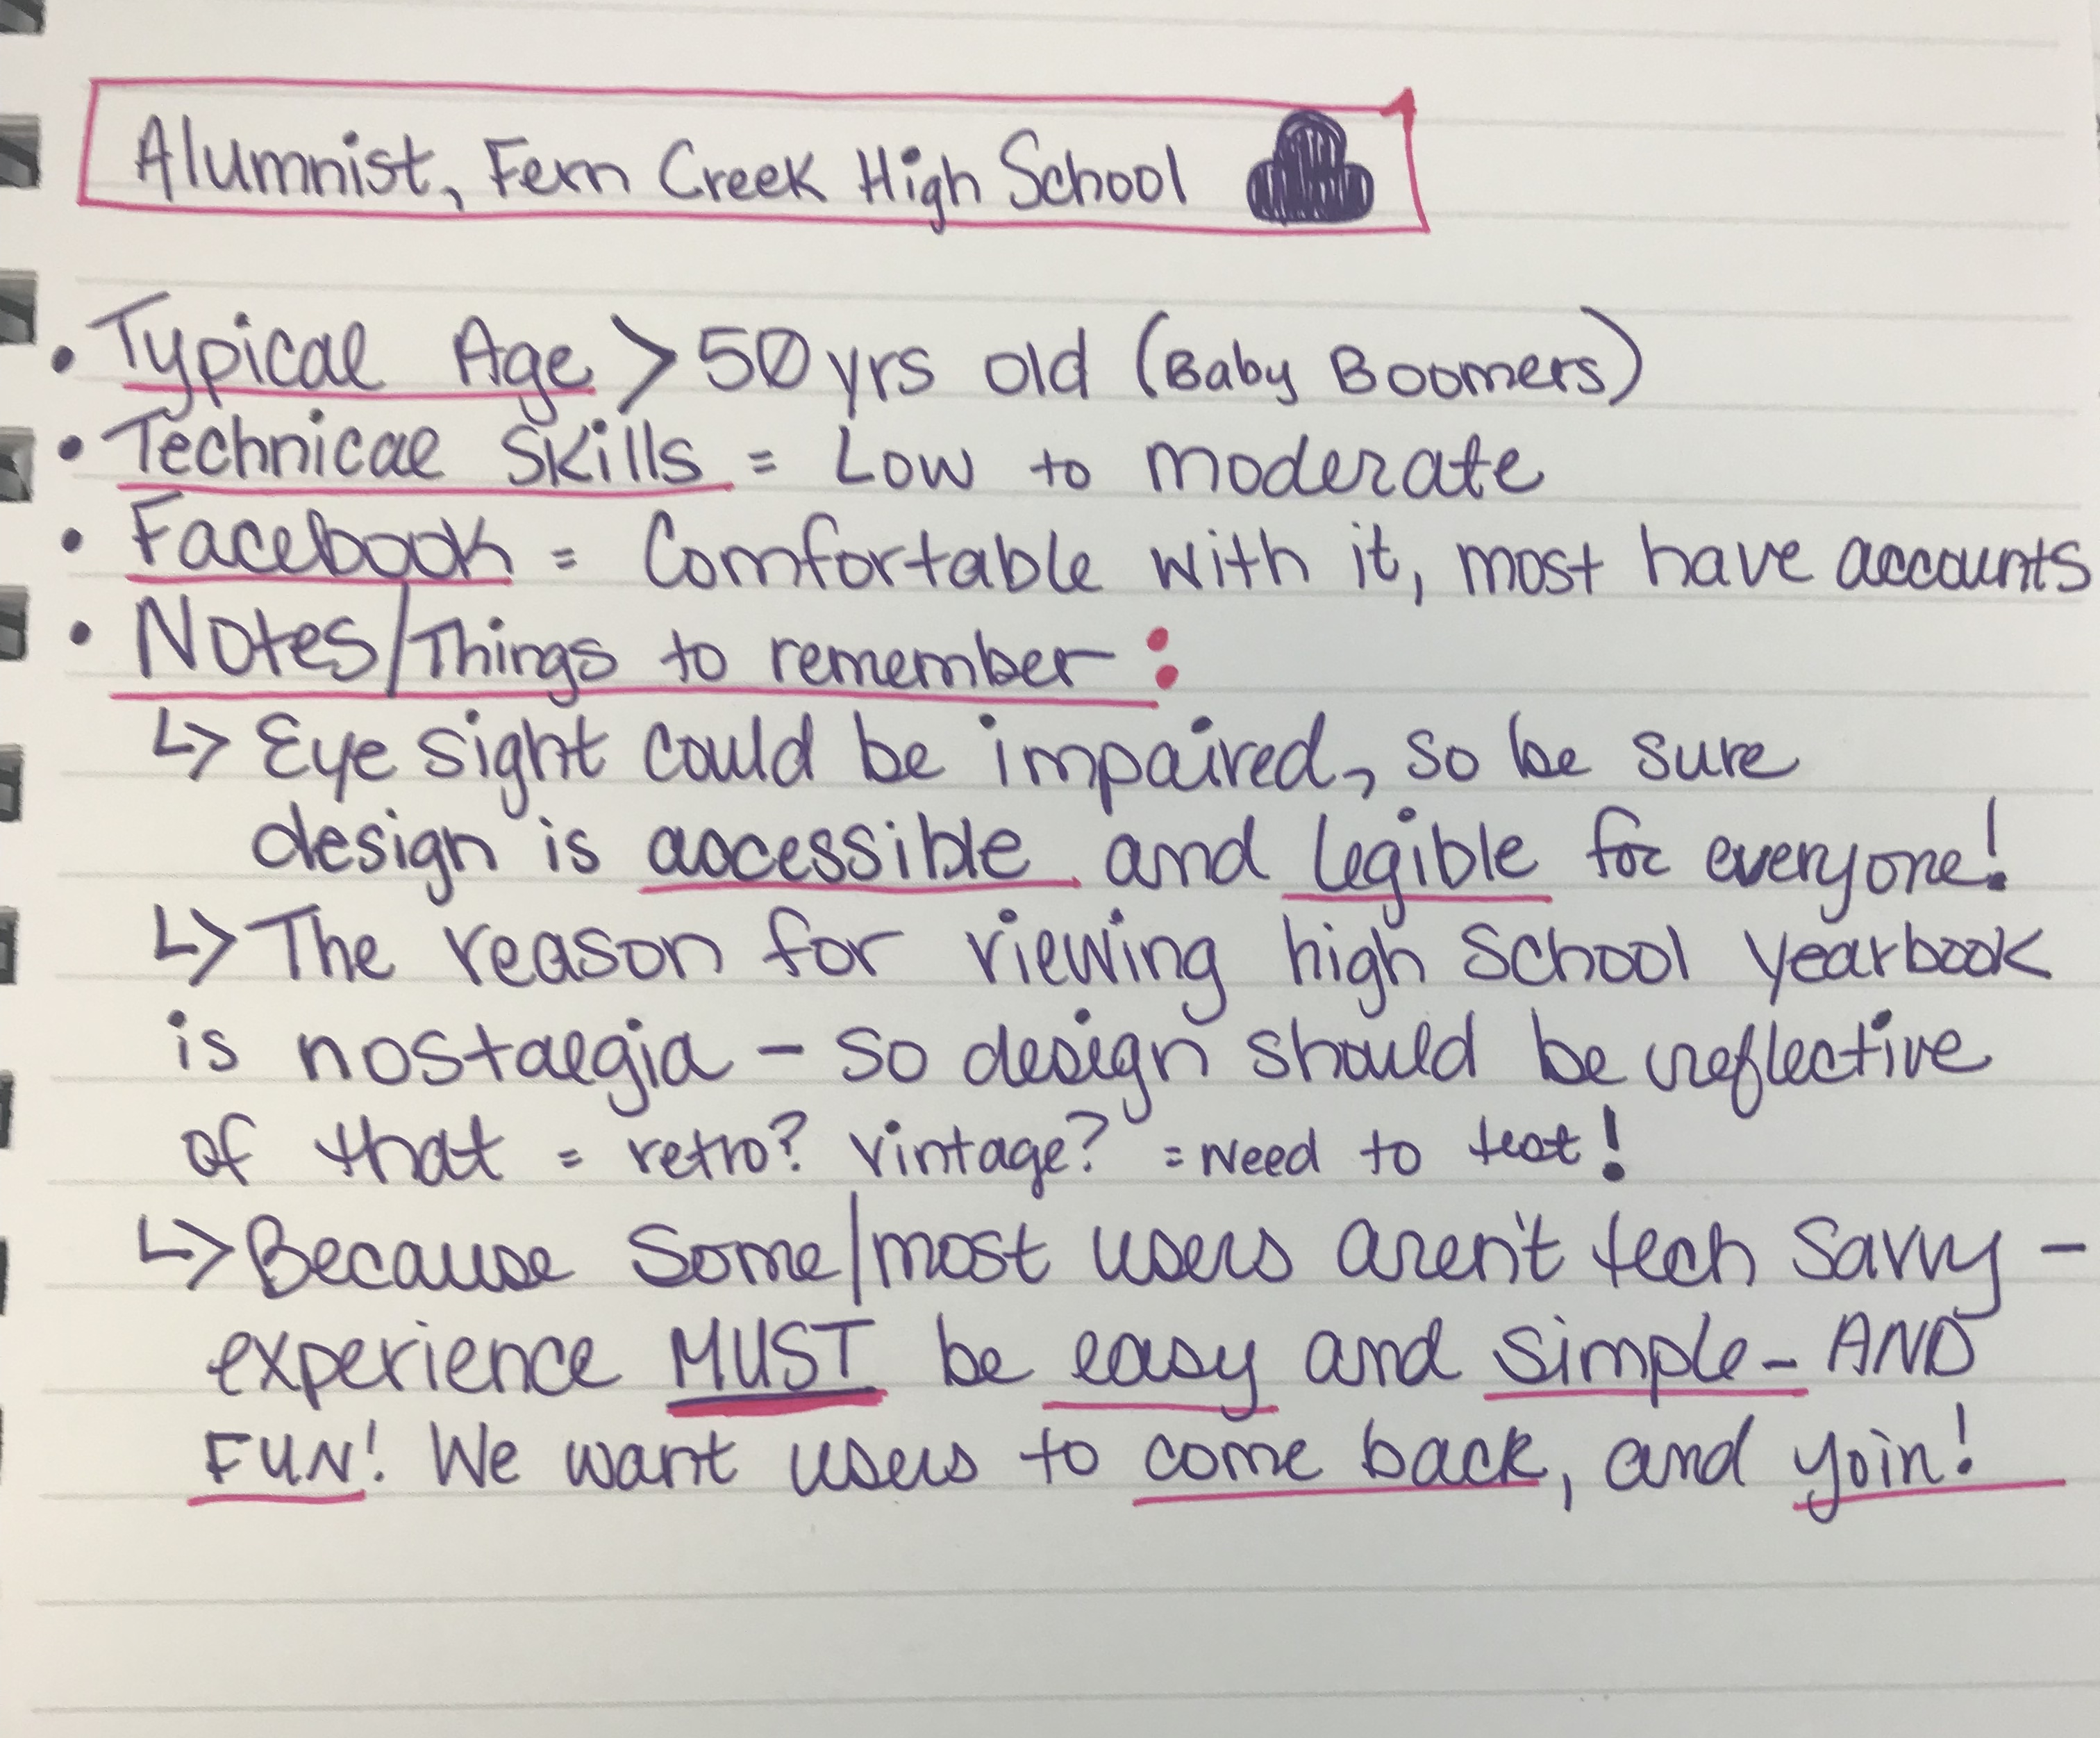 Alumnist, Fern Creek High School
• Typical Age > 50 yrs old (Baby Boomers)
• Technical Skills = Low to moderate
• Facebook = Comfortable with it, most have accounts
• Notes/Things to remember:
↳ Eye sight could be impaired, so be sure
design is accessible and legible for everyone!
↳ The reason for viewing high school yearbook
is nostalgia - so design should be reflective
of that = retro? vintage? = need to test!
↳ Because some/most users aren't tech savvy -
experience MUST be easy and simple - AND
FUN! We want users to come back, and join!